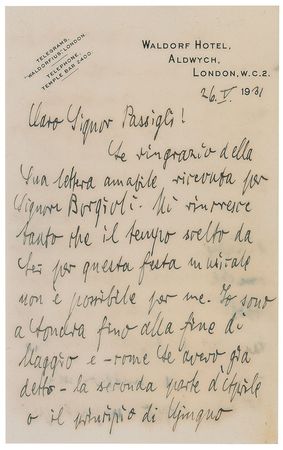 TELEGRAMS,
"WALDORFIUS-LONDON."
TELEPHONE,
TEMPLE BAR 2400.
WALDORF HOTEL,
ALDWYCH,
LONDON, W.C.2.
26. V. 1931
Caro Signor Passigli!
Le ringrazio della
Sua lettera amabile ricevuta per
Signora Borgioli. Mi rincresce
tanto che il tempo scelto da
Lei per questa festa musicale
non e possibile per me. Io sono
a Londra fino alla fine di
Maggio e - come Le avevo già
detto - la seconda parte d'Aprile
o il principio di Giugno